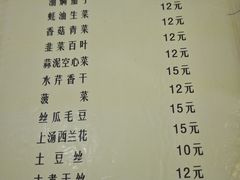 油焖茄子
蚝油生菜
香菇青菜
韭菜百叶
蒜泥空心菜
水芹香干
菠 菜
丝瓜毛豆
上汤西兰花
土豆丝
12元
12元
12元
12元
15元
12元
15元
15元
10元
12元